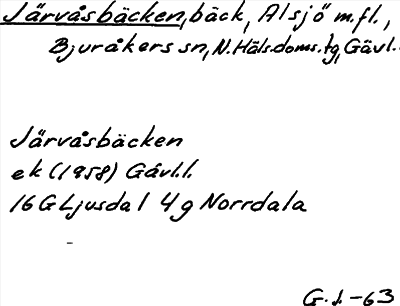 Järvåsbäcken, bäck, Alsjö m.fl.,
Bjuråkers sn, N.Häls.doms.tg, Gävl.
Järvåsbäcken
ek (1958) Gävl.l.
16G Ljusdal 4g Norrdala
G.J.-63